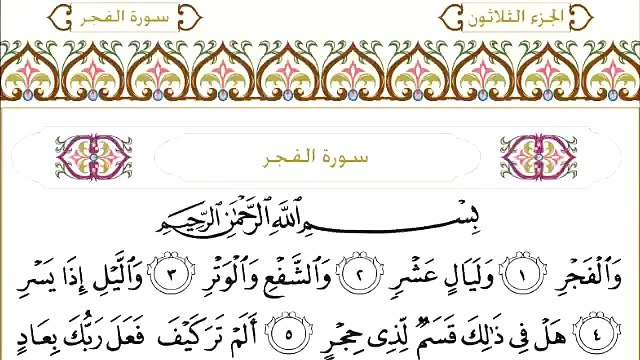 الجزء الثلاثون
سورة الفجر
سورة الفجر
بِسْمِ اللَّهِ الرَّحْمَٰنِ الرَّحِيمِ
وَالْفَجْرِ ١ وَلَيَالٍ عَشْرٍ ٢ وَالشَّفْعِ وَالْوَتْرِ ٣ وَاللَّيْلِ إِذَا يَسْرِ
٤ هَلْ فِي ذَٰلِكَ قَسَمٌ لِّذِي حِجْرٍ ٥ أَلَمْ تَرَ كَيْفَ فَعَلَ رَبُّكَ بِعَادٍ